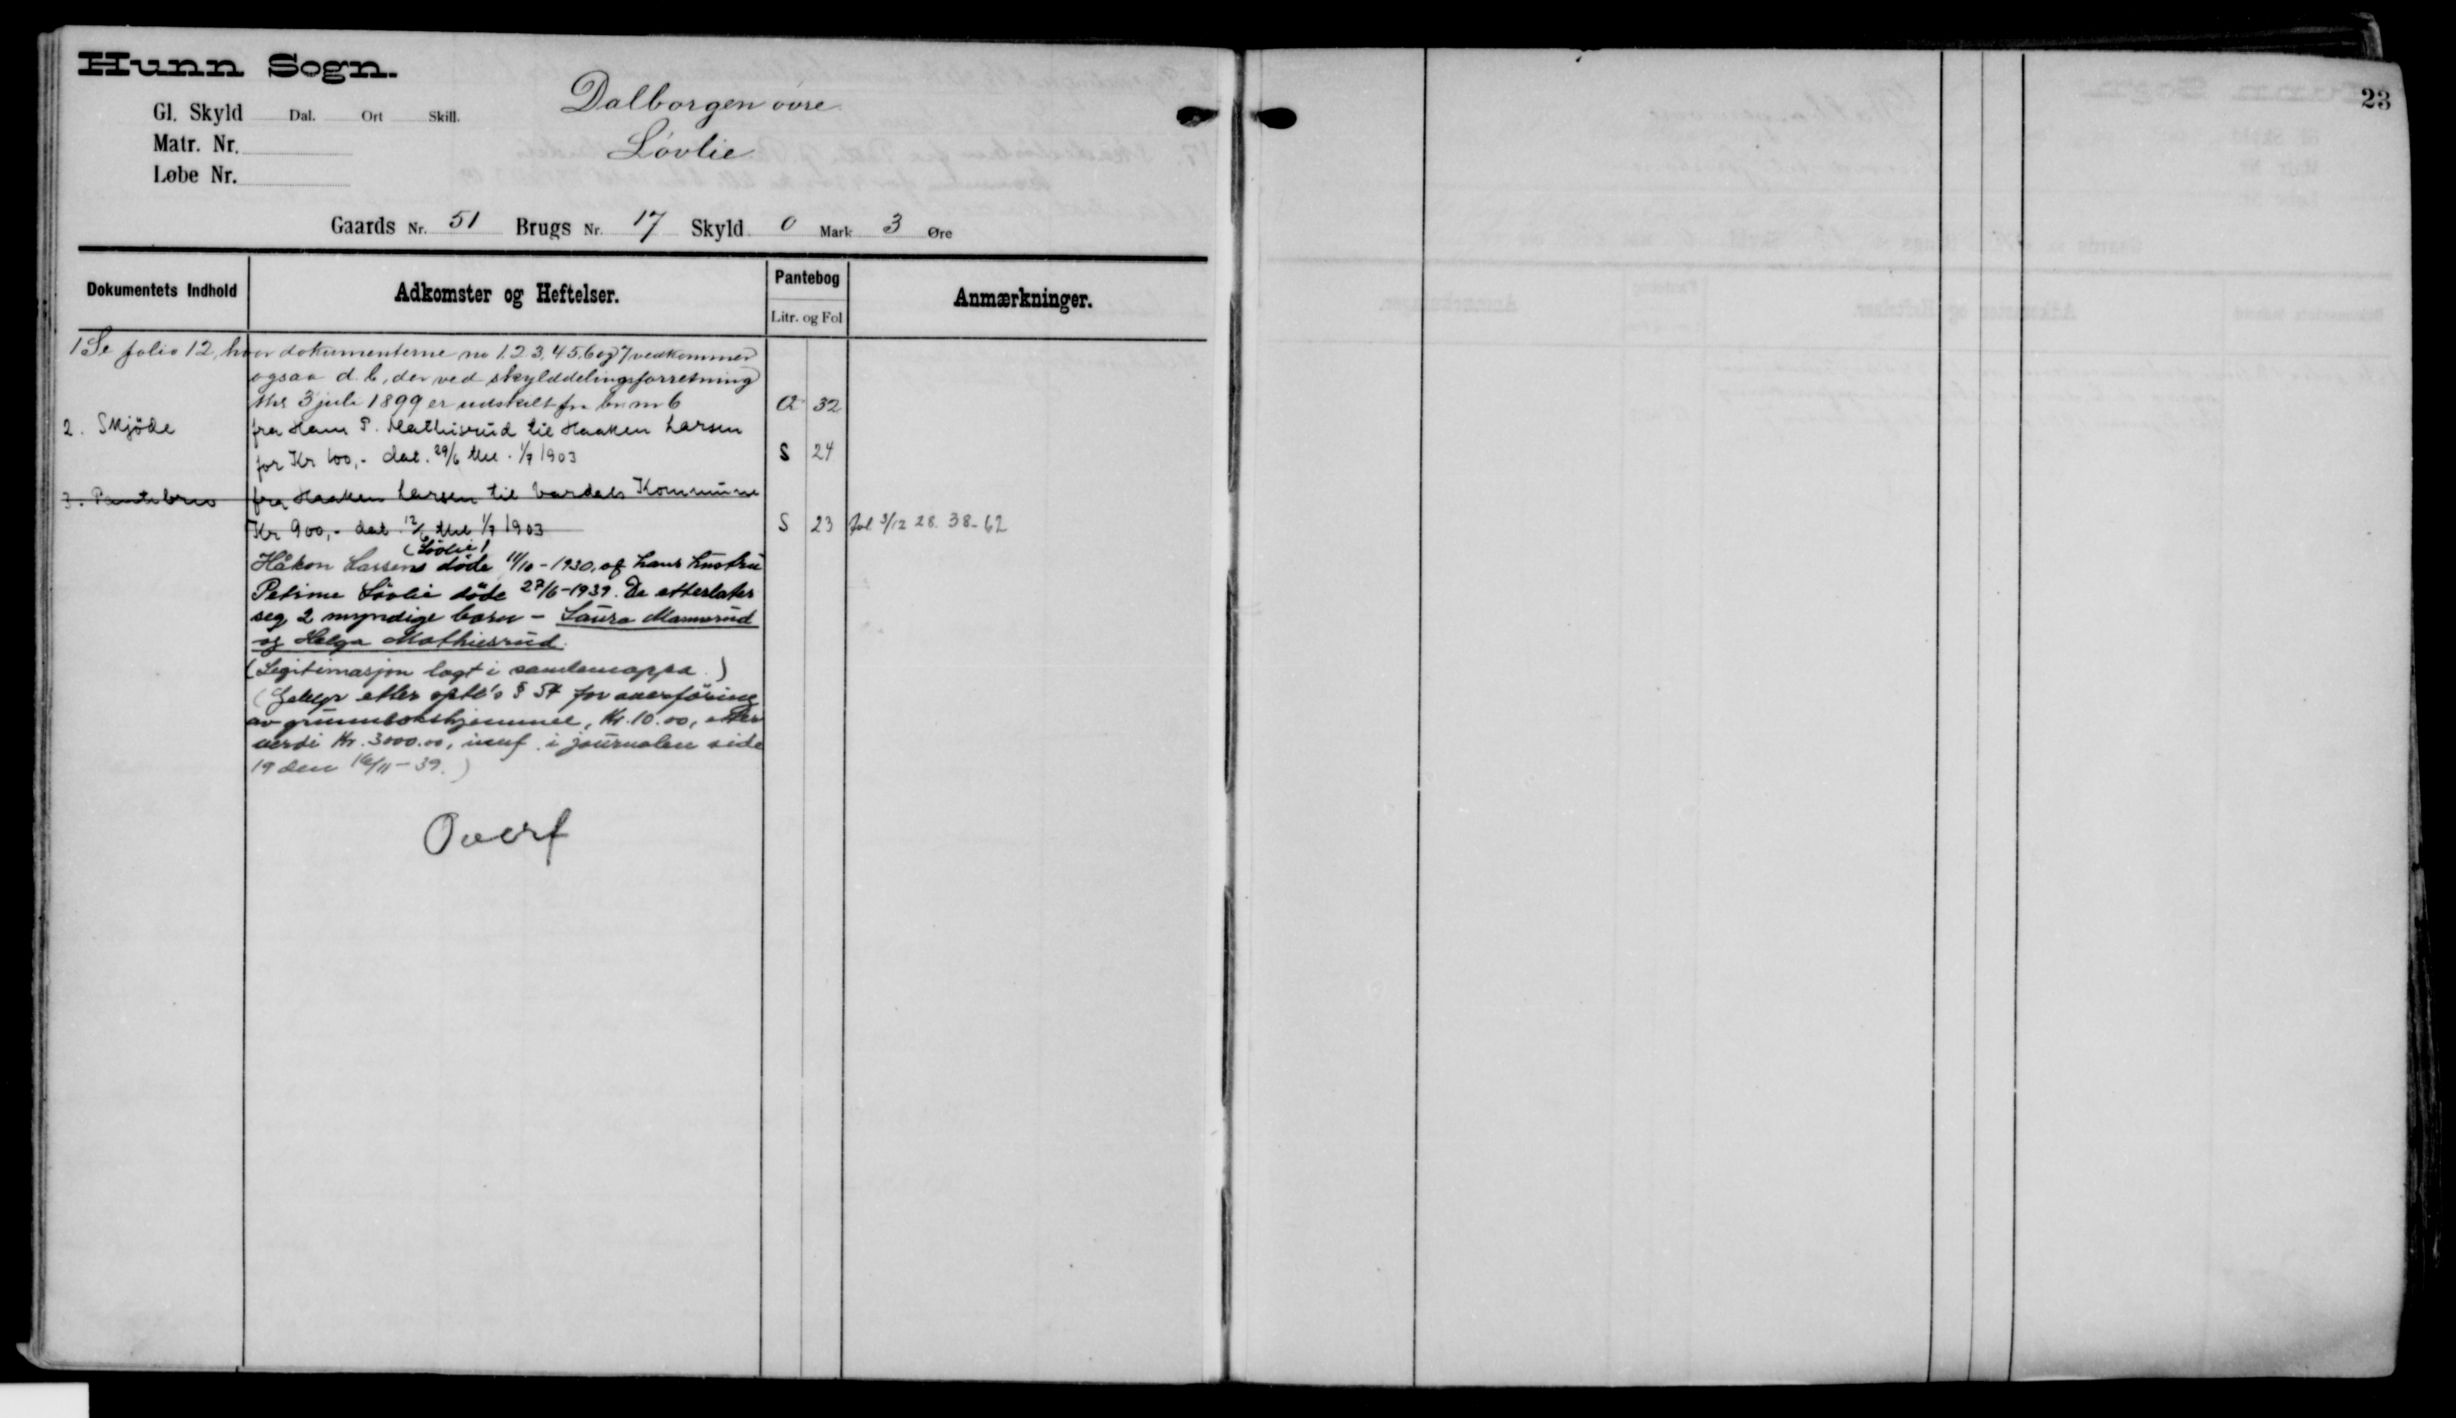 Hunn Sogn.
23
Gl. Skyld Dal. Ort Skill.
Dalborgen övre
Matr. Nr.
Lövlie
Løbe Nr.
Gaards Nr. 51 Brugs Nr. 17 Skyld 0 Mark 3 Øre
Dokumentets Indhold
Adkomster og Heftelser.
Pantebog
Litr. og Fol
Anmærkninger.
1 Se folio 12, hvor dokumenterne no 1. 2 3. 4 5. 6 og 7 vedkommer
ogsaa d. b, der ved skylddelingsforretning
thl 3 juli 1899 er udskilt fra br. nr 6 Q 32
2. Skjöde fra Hans P. Mathisrud til Haaken Larsen
for Kr 100,- dat. 29/6 thl. 1/7 1903 S 24
3. Pantebrev fra Haaken Larsen til Vardals Kommune
Kr 900,- dat 12/6 thl 1/7 1903 S 23 Avl 3/12 28. 38-62
(Lövlie)
Håkon Larsens döde 11/10-1930, og hans hustru
Petrine Lövlie döde 27/6-1939. De etterlater
seg 2 myndige barn - Laura
og Helga Mathiesrud.
(Legitimasjon lagt i samlemappa.)
(Gebyr etter § 54 for overföring
av grunnbokshjemmel, Kr. 10.00, etter
verdi Kr. 3000.00, i journalen side
19 den 16/11-39.)
Overf